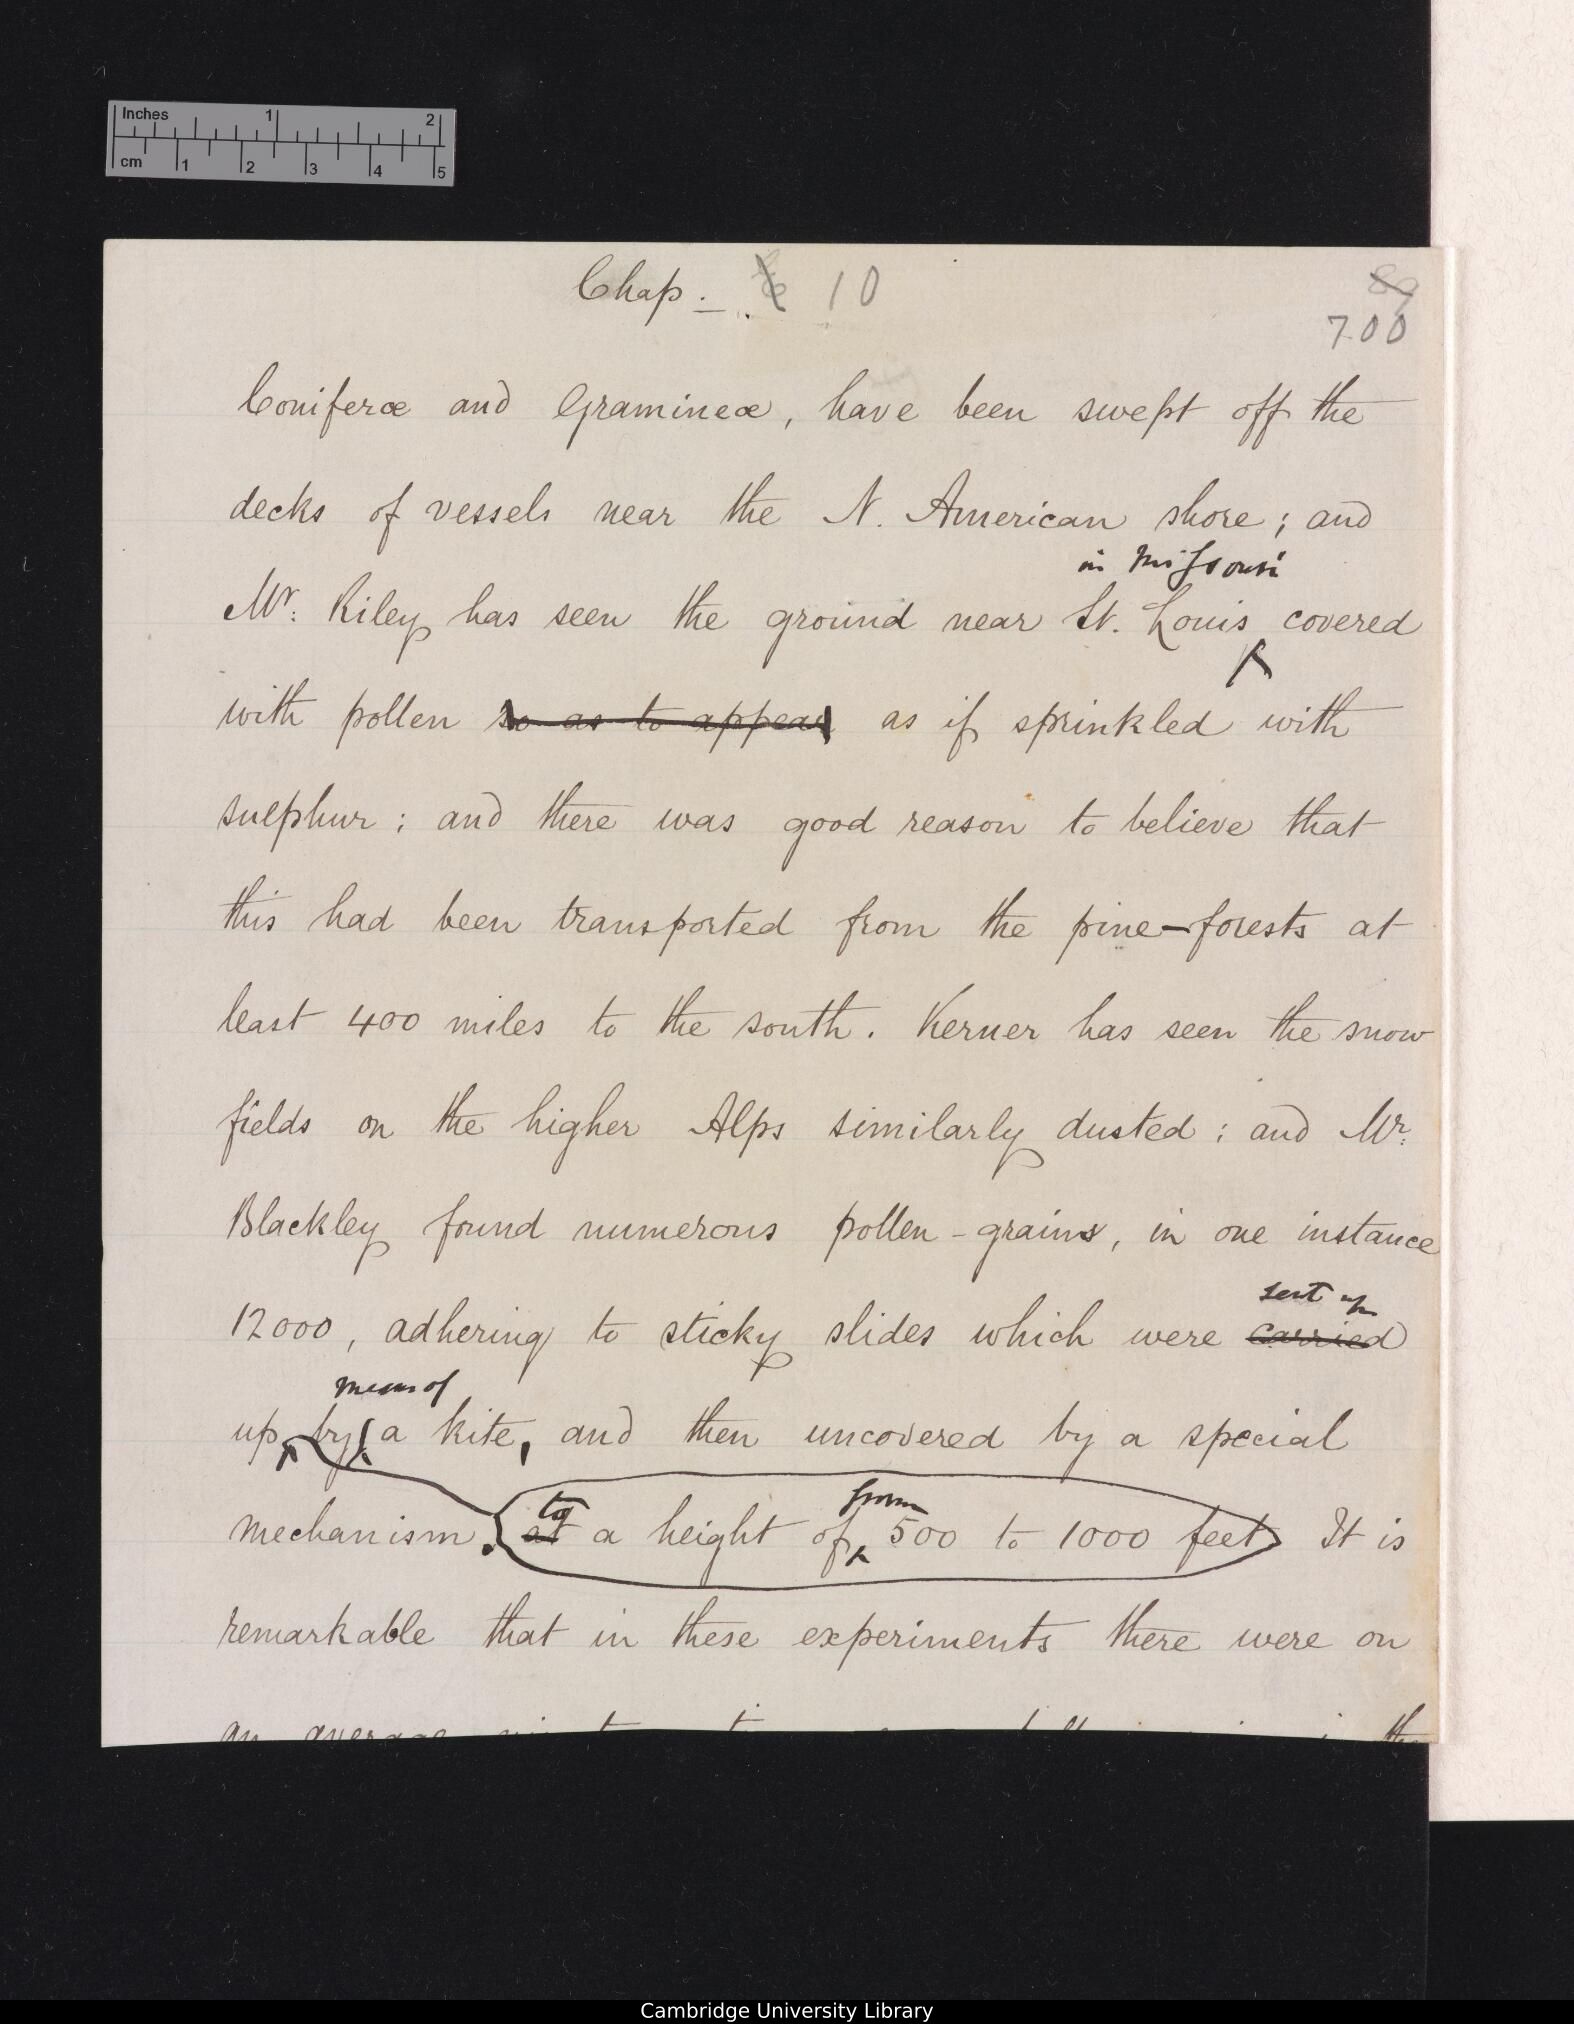 Inches 1 2
cm 1 2 3 4 5
Chap. 6 10
700
Coniferæ and Gramineæ, have been swept off the
decks of vessels near the N. American shore; and
in Missouri
Mr. Riley has seen the ground near St. Louis covered
with pollen so as to appear as if sprinkled with
sulphur; and there was good reason to believe that
this had been transported from the pine-forests at
least 400 miles to the south. Kerner has seen the snow
fields on the higher Alps similarly dusted; and Mr.
Blackley found numerous pollen-grains, in one instance
sent up
12000, adhering to sticky slides which were carried
means of
up by a kite, and then uncovered by a special
to from
mechanism. at a height of 500 to 1000 feet It is
remarkable that in these experiments there were on
an average the
Cambridge University Library